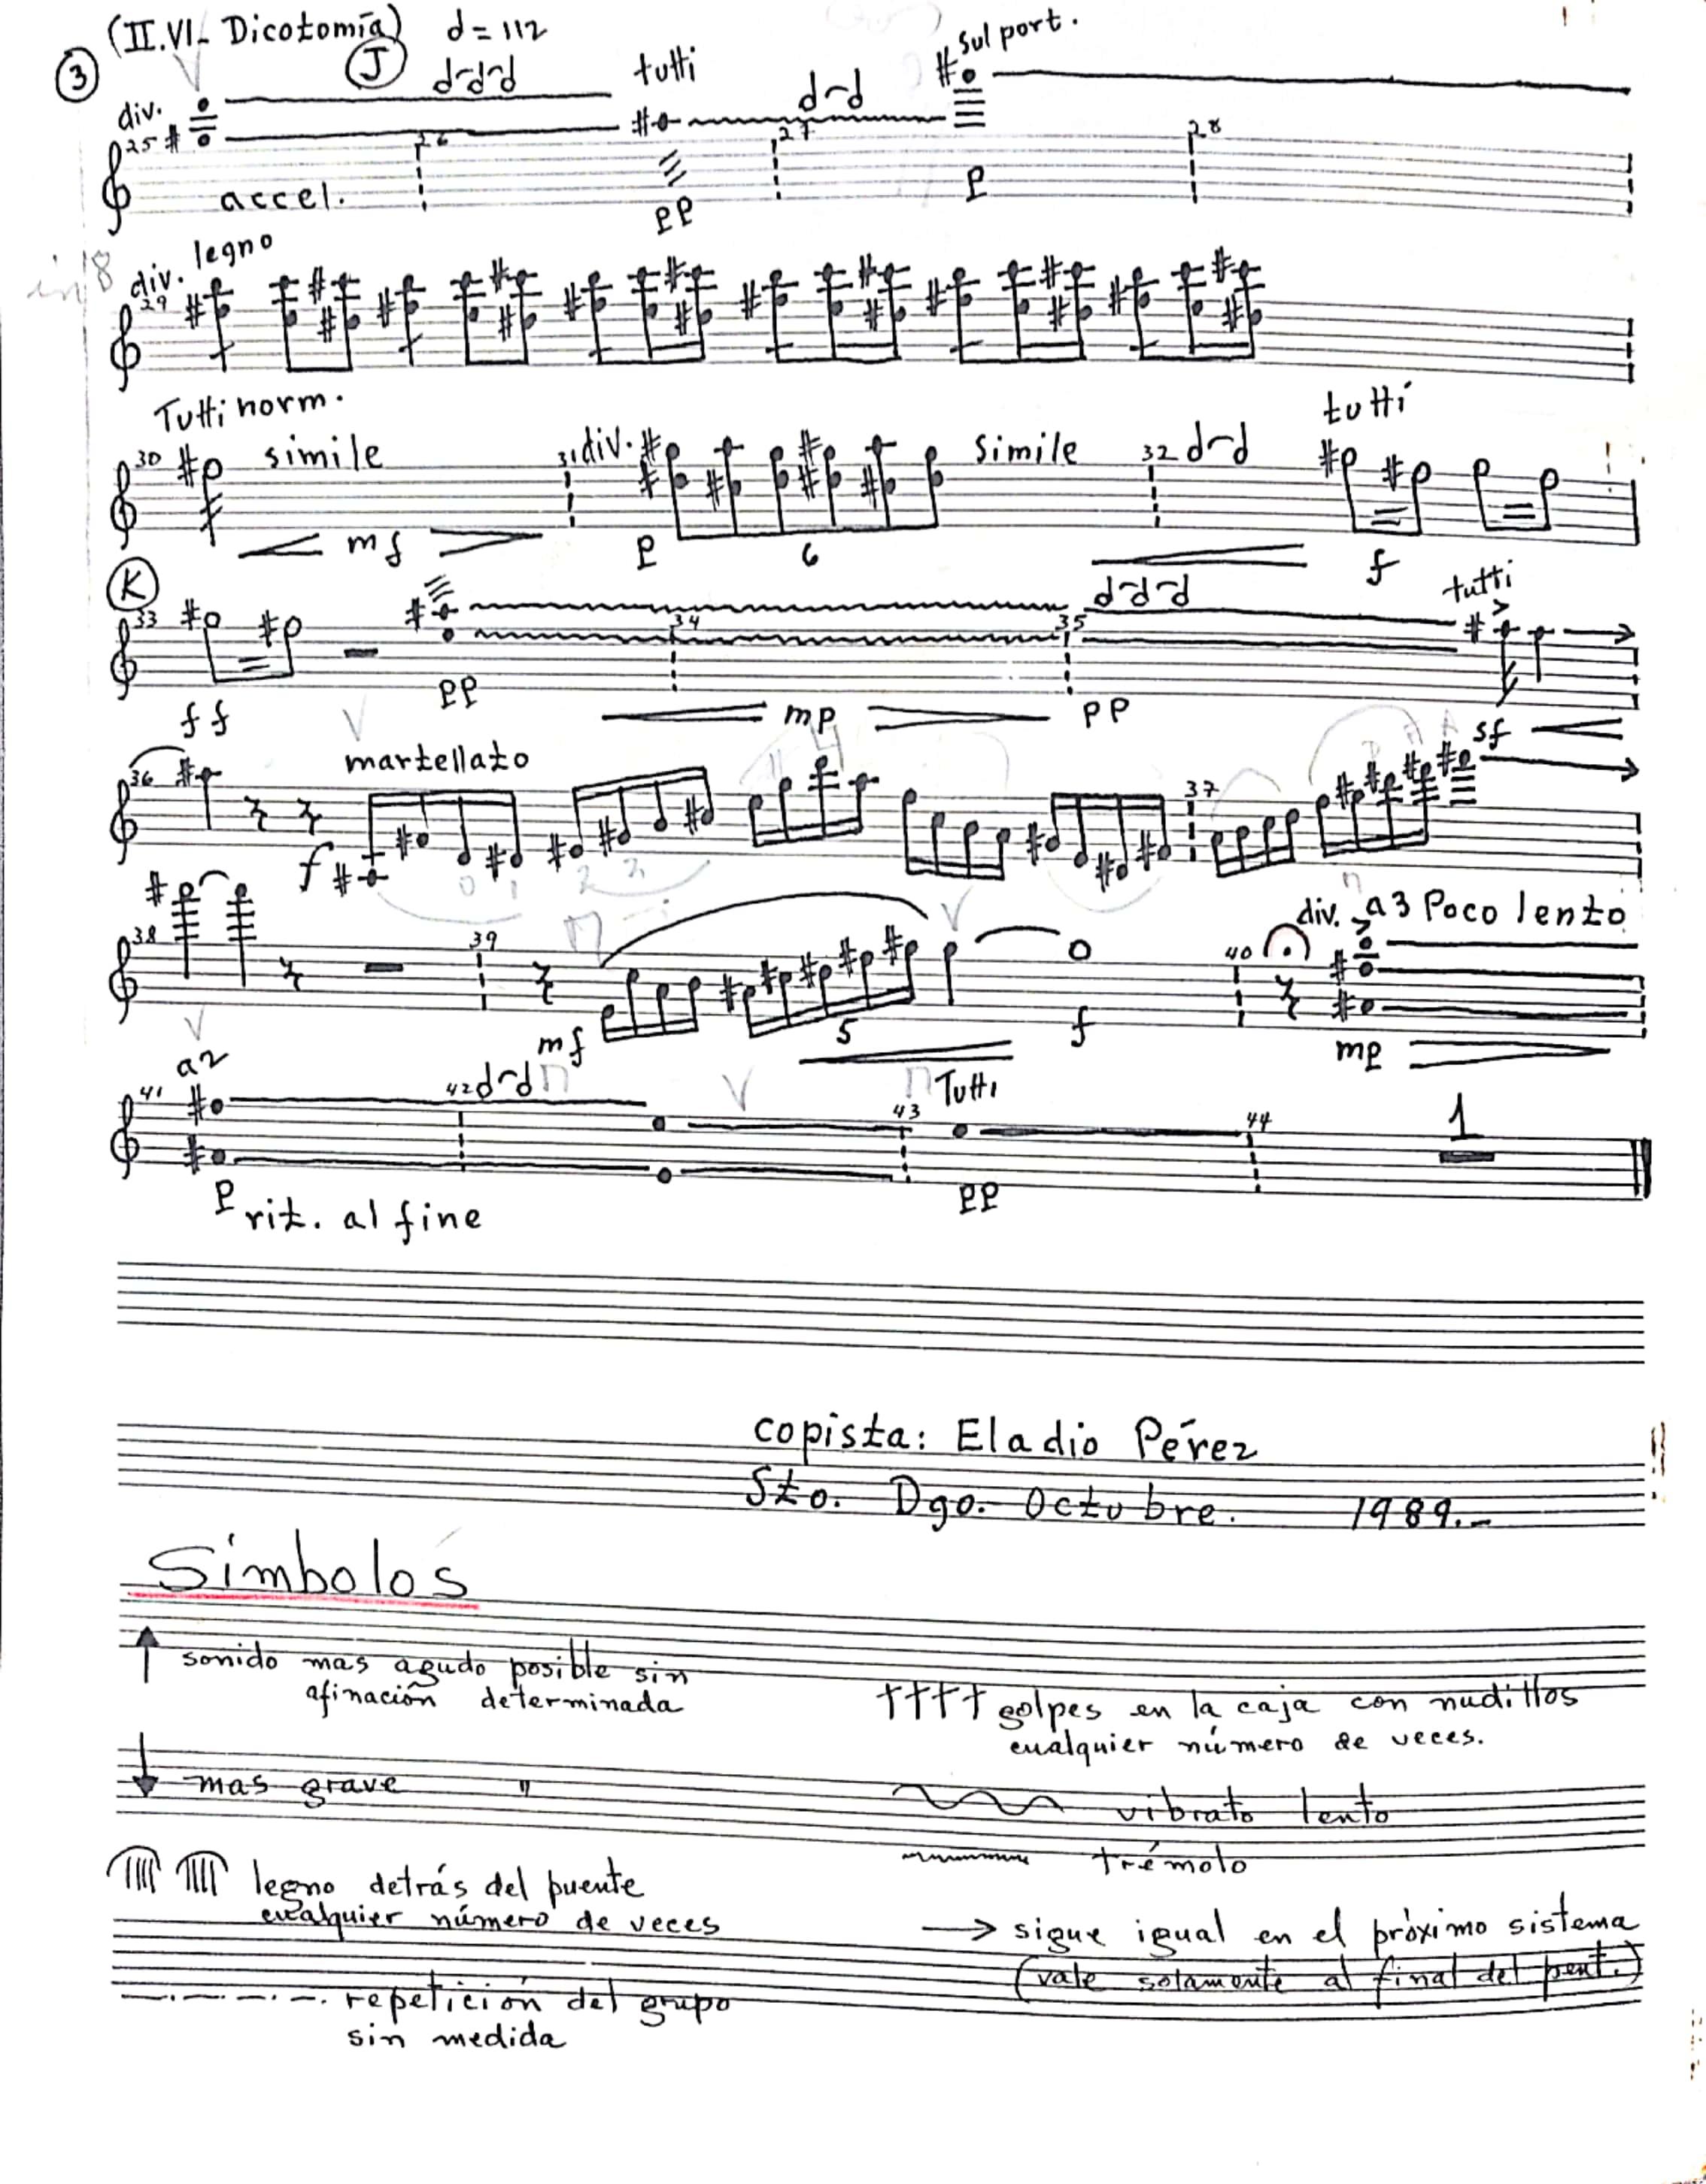 (II.VI- Dicotomía) d = 112
3 J d-d-d tutti d-d sul port.
div.
25 26 27 28
accel. pp p
div. legno
29
Tutti norm. tutti
30 simile 31 div. simile 32 d-d
mf p 6 f
K
33 34 35 d-d-d tutti
ff pp mp pp sf
36 martellato 37
f
div. a3 Poco lento
38 39 40
mf 5 f mp
a2
41 42 d-d 43 Tutti 44 1
p rit. al fine pp
copista: Eladio Pérez
Sto. Dgo. Octubre. 1989.-
Símbolos
sonido mas agudo posible sin
afinación determinada
++++ golpes en la caja con nudillos
cualquier número de veces.
mas grave "
vibrato lento
trémolo
legno detrás del puente
cualquier número de veces
→ sigue igual en el próximo sistema
(vale solamente al final del pent.)
repetición del grupo
sin medida